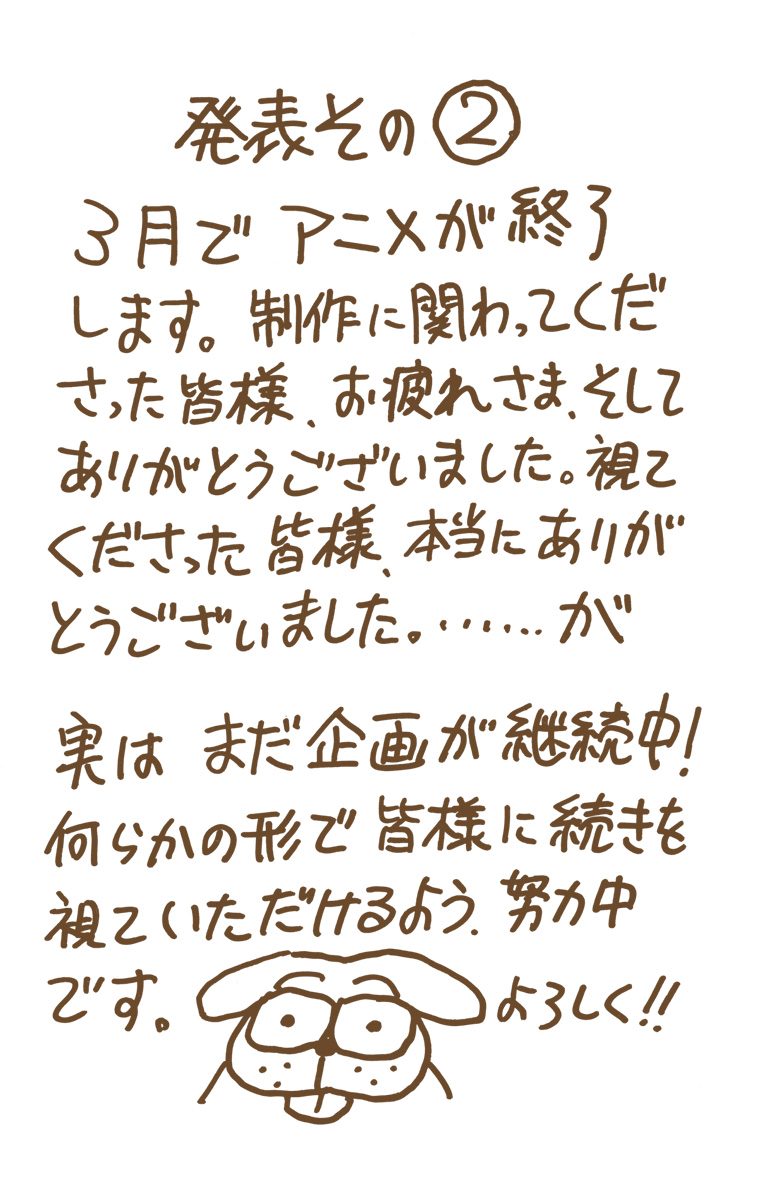 発表その②
3月でアニメが終了
します。制作に関わってくだ
さった皆様、お疲れさま、そして
ありがとうございました。視て
くださった皆様、本当にありが
とうございました。‥‥‥が
実は まだ企画が継続中!
何らかの形で皆様に続きを
視ていただけるよう、努力中
です。 よろしく!!